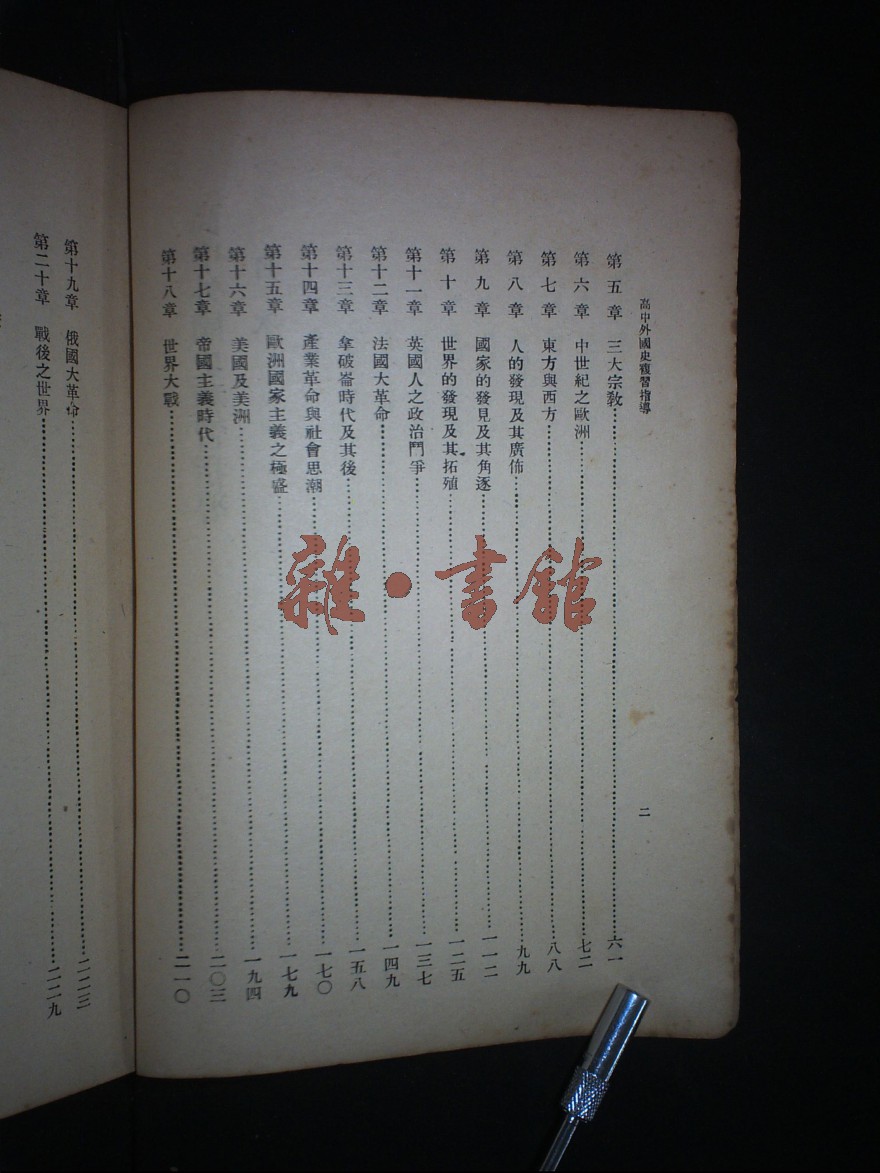 高中外國史複習指導
二
第五章 三大宗敎……六一
第六章 中世紀之歐洲……七二
第七章 東方與西方……八八
第八章 人的發現及其廣佈……九九
第九章 國家的發見及其角逐……一一二
第十章 世界的發現及其拓殖……一二五
第十一章 英國人之政治鬥爭……一三七
第十二章 法國大革命……一四九
第十三章 拿破崙時代及其後……一五八
第十四章 產業革命與社會思潮……一七〇
第十五章 歐洲國家主義之極盛……一七九
第十六章 美國及美洲……一九四
第十七章 帝國主義時代……二〇三
第十八章 世界大戰……二一〇
第十九章 俄國大革命……二二三
第二十章 戰後之世界……二二九
雜·書館